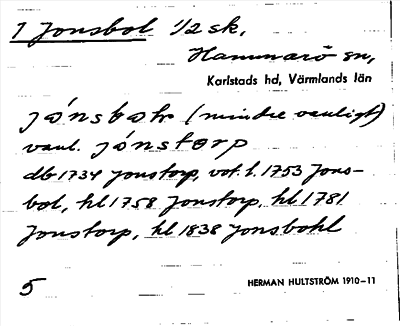 1 Jonsbol 1/2 sk,
Hammarö sn,
Karlstads hd, Värmlands län
jónsbohr (mindre vanligt)
vanl. jónstorp
db 1734 Jonstorp, vot. l. 1753 Jons-
bol, hl 1758 Jonstorp, hl 1781
Jonstorp, hl 1838 Jonsbohl
5
HERMAN HULTSTRÖM 1910-11